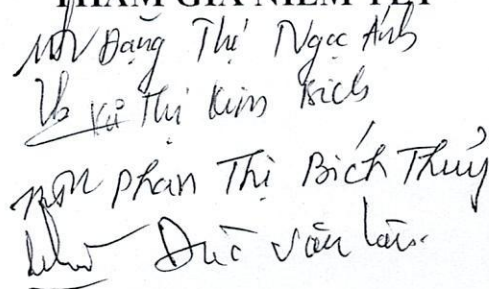 THAM GIA NIÊM YẾT
Đặng Thị Ngọc Ánh
Vũ Thị Kim Bích
Phan Thị Bích Thủy
Đức Văn